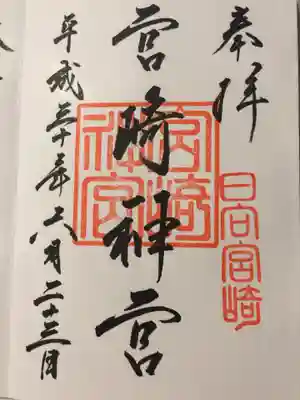 奉拝
日向宮崎
宮崎神宮
宮崎神宮
平成三十年六月二十三日